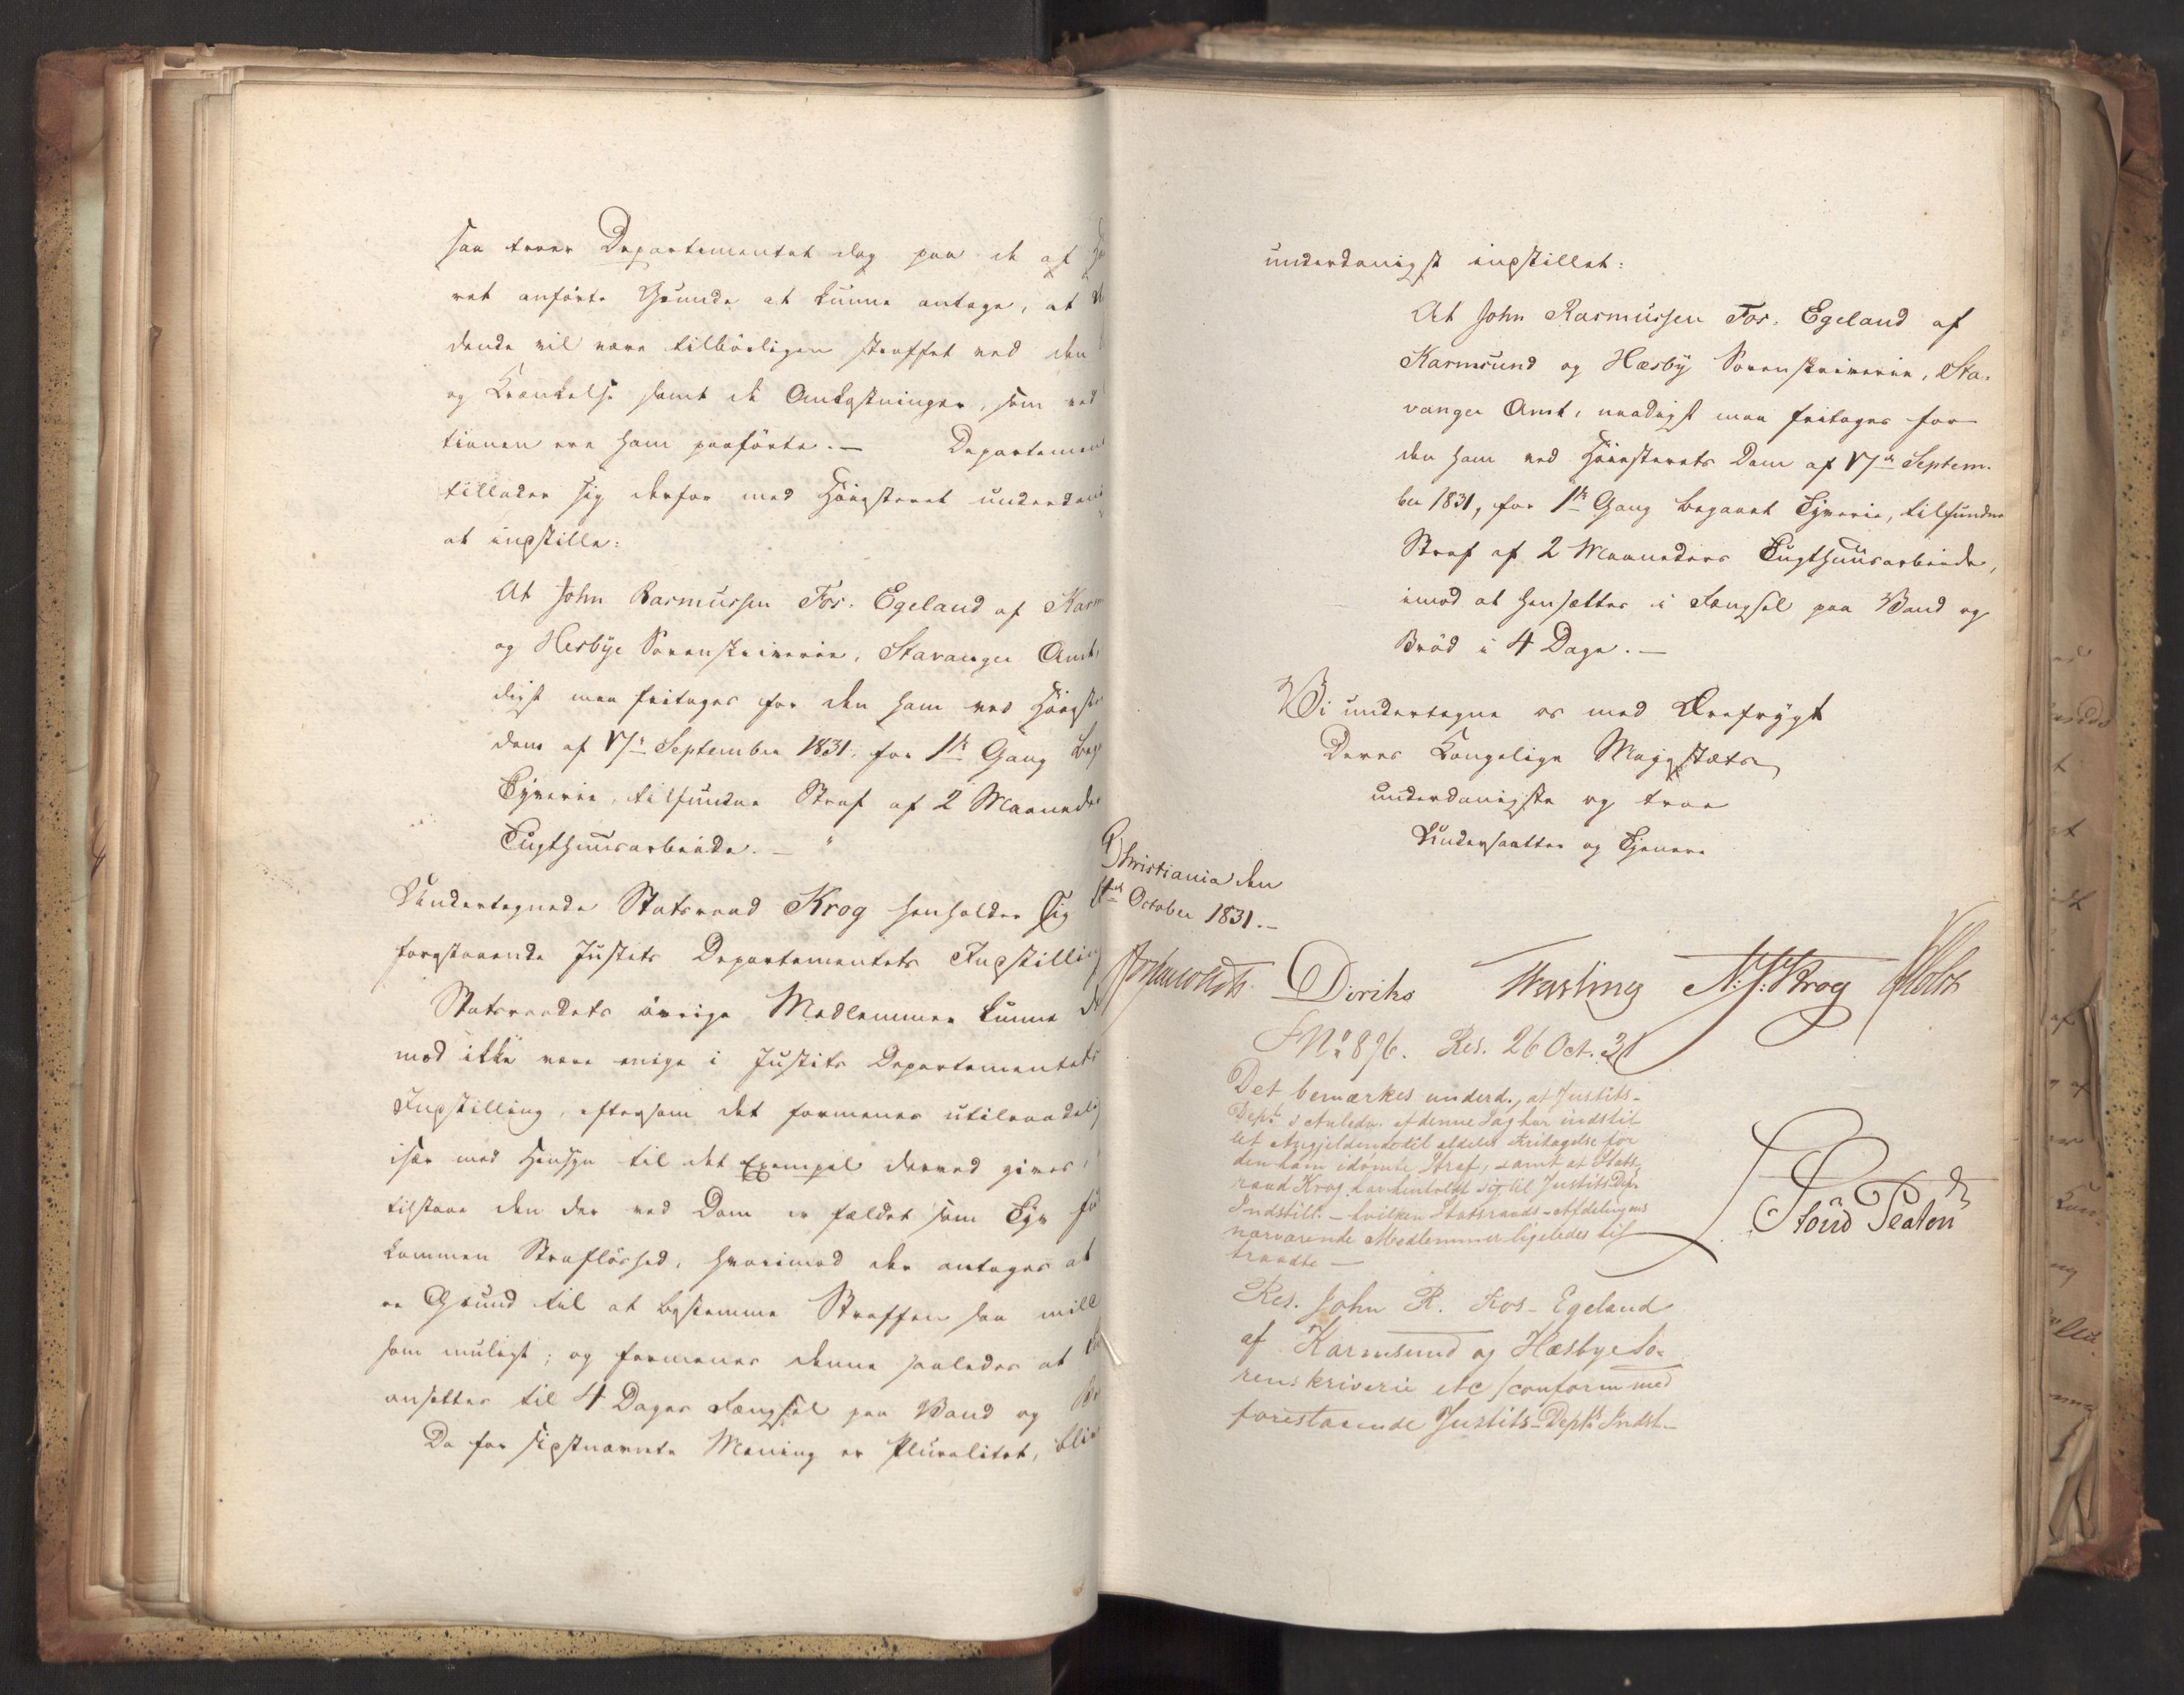 saa troer Departementet dog paa de af Hö
ret anförte Grunde at kunne antage, at
dende vil være tilbörligen straffet ved den
og Krænkelse samt de Omkostninger, som ved
tionen ere ham paaförte. — Departemen
tillader sig derfor med Höiesteret underdani
at indstille:
At John Rasmussen Fos. Egeland af Karm
og Hesbye Sorenskriverie, Stavanger Amt,
digst maa fritages for den ham ved Höieste
dom af 17de September 1831, for 1ste Gang beg
Tyverie, tilfundne Straf af 2 Maaneder
Tugthuusarbeide. —
Undertegnede Statsraad Krog henholder sig
foregstaaende Justits Departementets Indstilling
Statsraadets övrige Medlemmer kunne de
mod ikke være enige i Justits Departementets
Indstilling, eftersom det formenes utilraadelig
især med Hensyn til det Exempel derved gives,
tilstaae den der ved Dom er fældet som Tyv fu
kommen Straflöshed, hvorimod der antages at
re Grund til at bestemme Straffen saa mild
som muligt; og formenes denne saaledes at
ansættes til 4 Dages Fængsel paa Vand og Br
Da for sidstnævnte Mening er Pluralitet, bliv
underdanigst indstillet:
At John Rasmussen Fos. Egeland af
Karmsund og Hæsby Sorenskriverie, Sta-
vanger Amt, naadigst maa fritages for
den ham ved Höiesterets Dom af 17de Septem-
ber 1831, for 1ste Gang begaaet Tyverie, tilfundne
Straf af 2 Maaneders Tugthuusarbeide,
imod at hensættes i Fængsel paa Vand og
Bröd i 4 Dage. —
Vi undertegne os med Ærefrygt
Deres Kongelige Majestæts
underdanigste og troe
Undersaatter og Tjenere
Christiania den
October 1831. —
Diriks Fasting N. J. Krog Holst
F No 896. Res. 26 Oct. 31
Det bemærkes underd., at Justits-
Dept. i Anledn. af denne Sag har indstil-
let Angjeldende til aldeles Fritagelse for
den ham idömte Straf, samt at Stats-
raad Krog har henholdt sig til Justits Dep.
Indstill. — hvilken Statsraads-Afdelingens
nærværende Medlemmer ligeledes til-
traadte —
Res. John R. Fos- Egeland
af Karmsund og Hæsbye So-
renskriverie etc /conform med
forestaaende Justits-Depts Indst.-